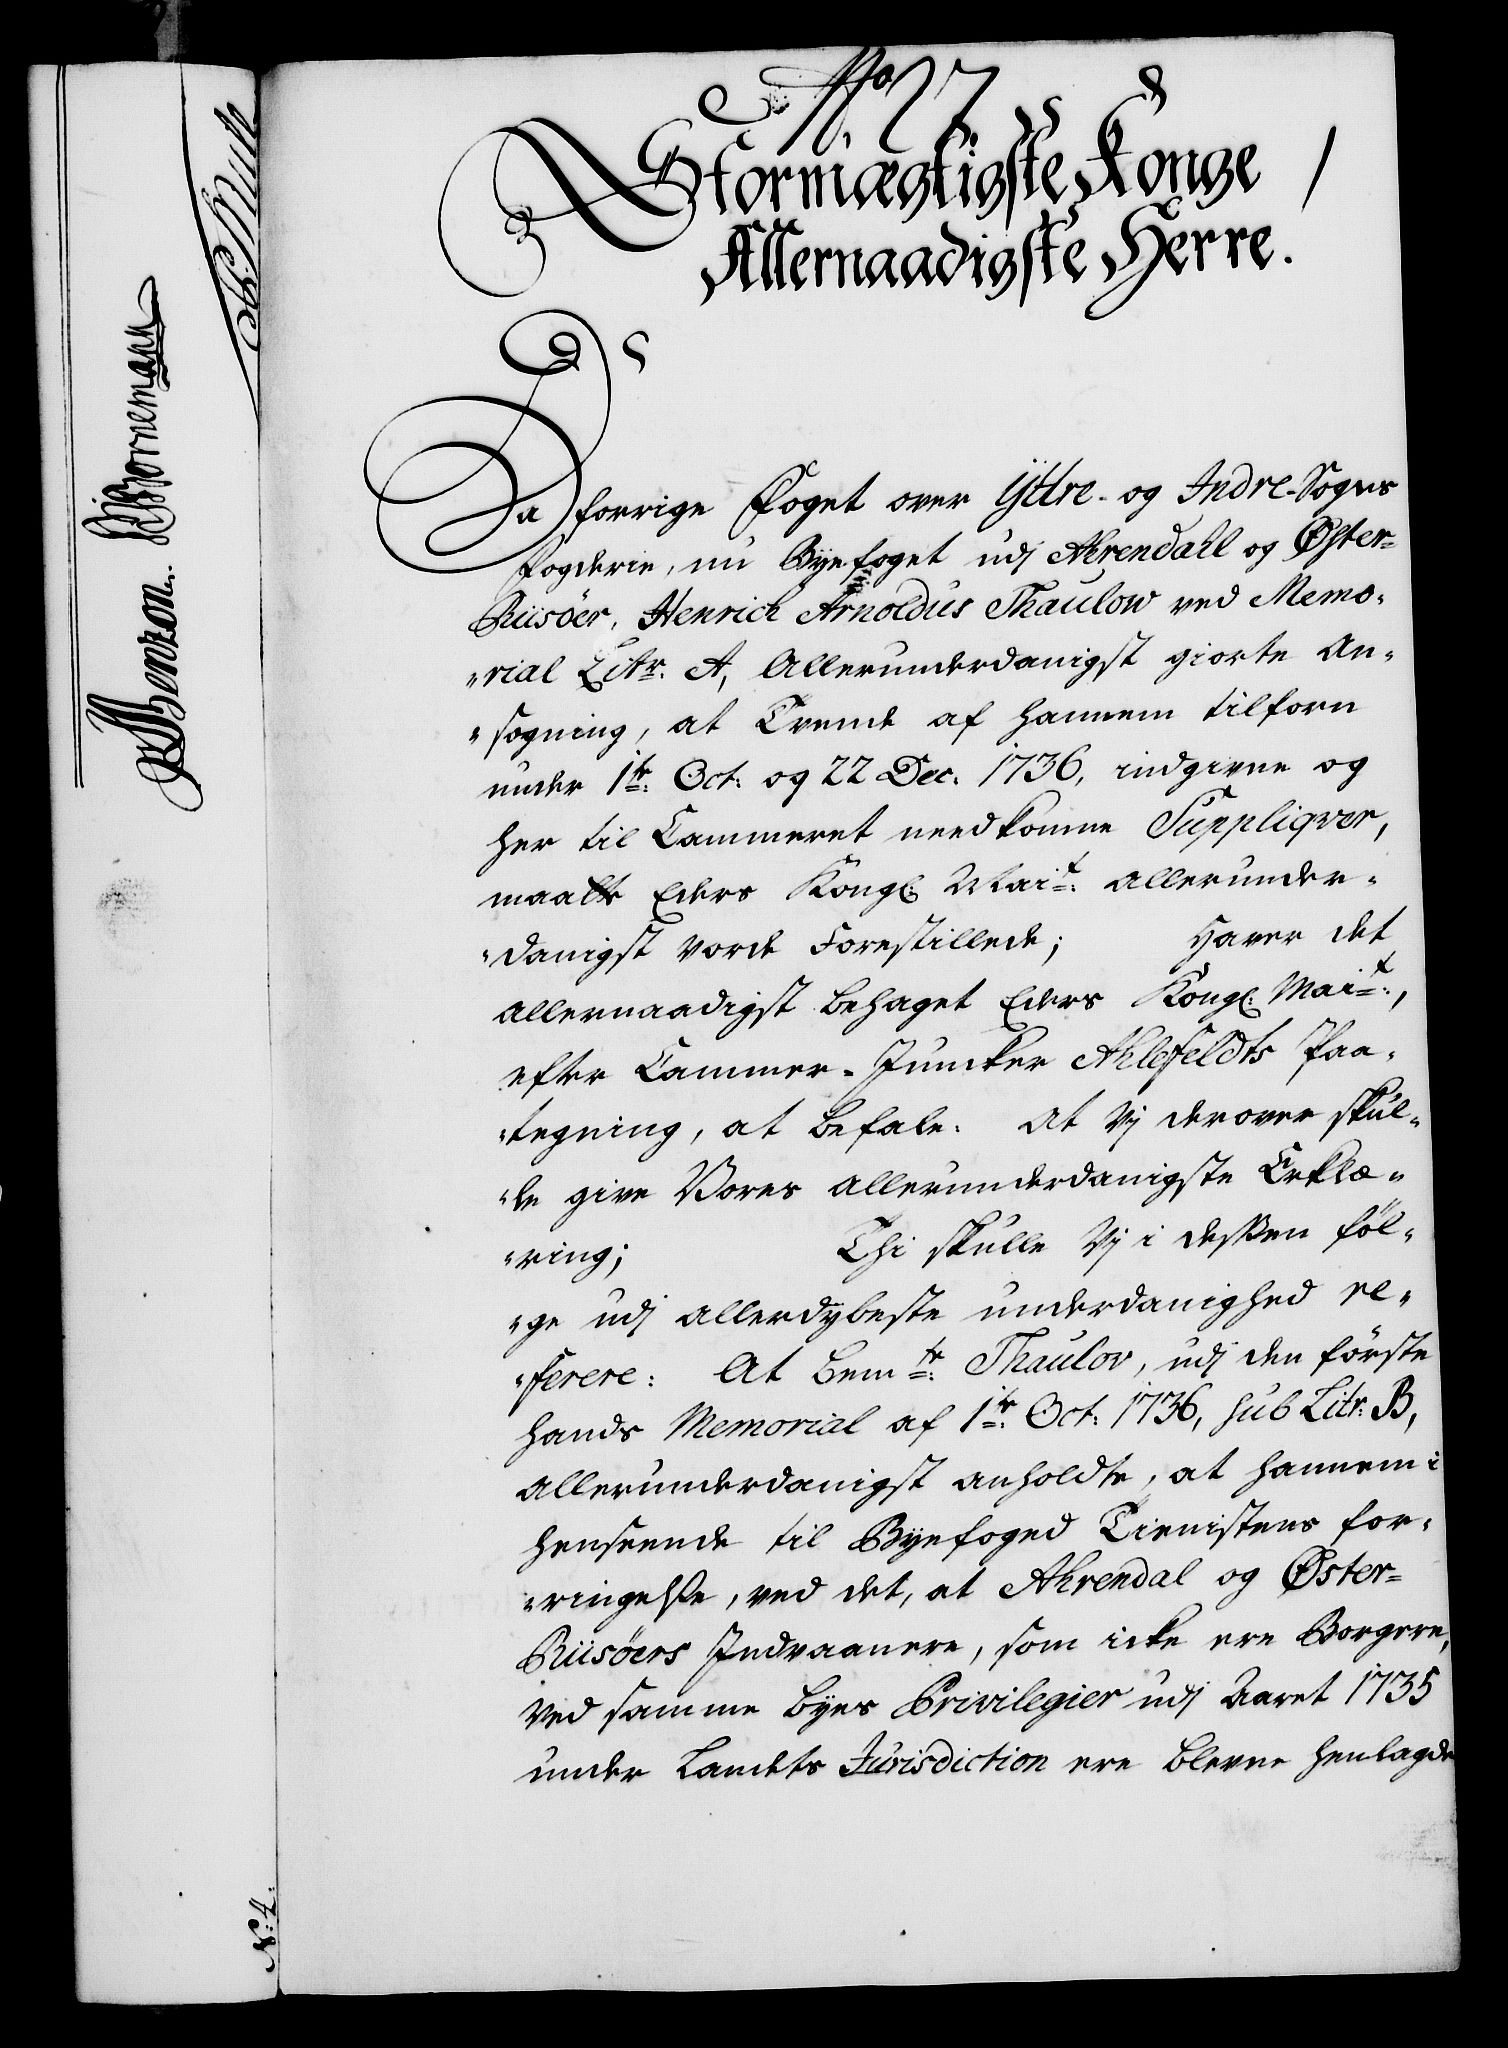 No 27.
Stormægtigste Konge
Allernaadigste Herre.
Da forrige Foget over Yttre- og Indre-Sogns
Fogderie, nu Byefoget udj Ahrendahl og Øster-
Riisöer, Henrich Arnoldus Thaulow ved Memo-
-rial Litr. A, allerunderdanigst giorte An-
-sogning, at Trende af hannem tilforn
under 1te Oct: og 22 Dec: 1736, indgivne og
her til Cammeret needkomne Suppliqver,
maatte Eders Kongl: Mait: allerunder-
-danigst vorde Forestillede; Haver det
allernaadigst behaget Eders Kongl: Mait:,
efter Cammer-Juncker Ahlefeldts Paa-
-tegning, at befale: At Vj derover skul-
-de give Vores allerunderdanigste Erklæ-
-ring; Thi skulle Vj i deßen föl-
-ge udj allerdybeste underdanighed re-
-ferere: At bemte: Thaulov, udj den förste
hands Memorial af 1te Oct: 1736, sub Litr: B,
allerunderdanigst anholdte, at hannem i
henseende til Byefoged Tienistens for-
-ringelße, ved det, at Ahrendal og Øster-
Riisöers Indvaanere, som icke ere Borgere,
ved samme byes Privilegier udj Aaret 1735
under Landets Jurisdiction ere blevne henlagde
Benzon. Bornemann
N: 4: